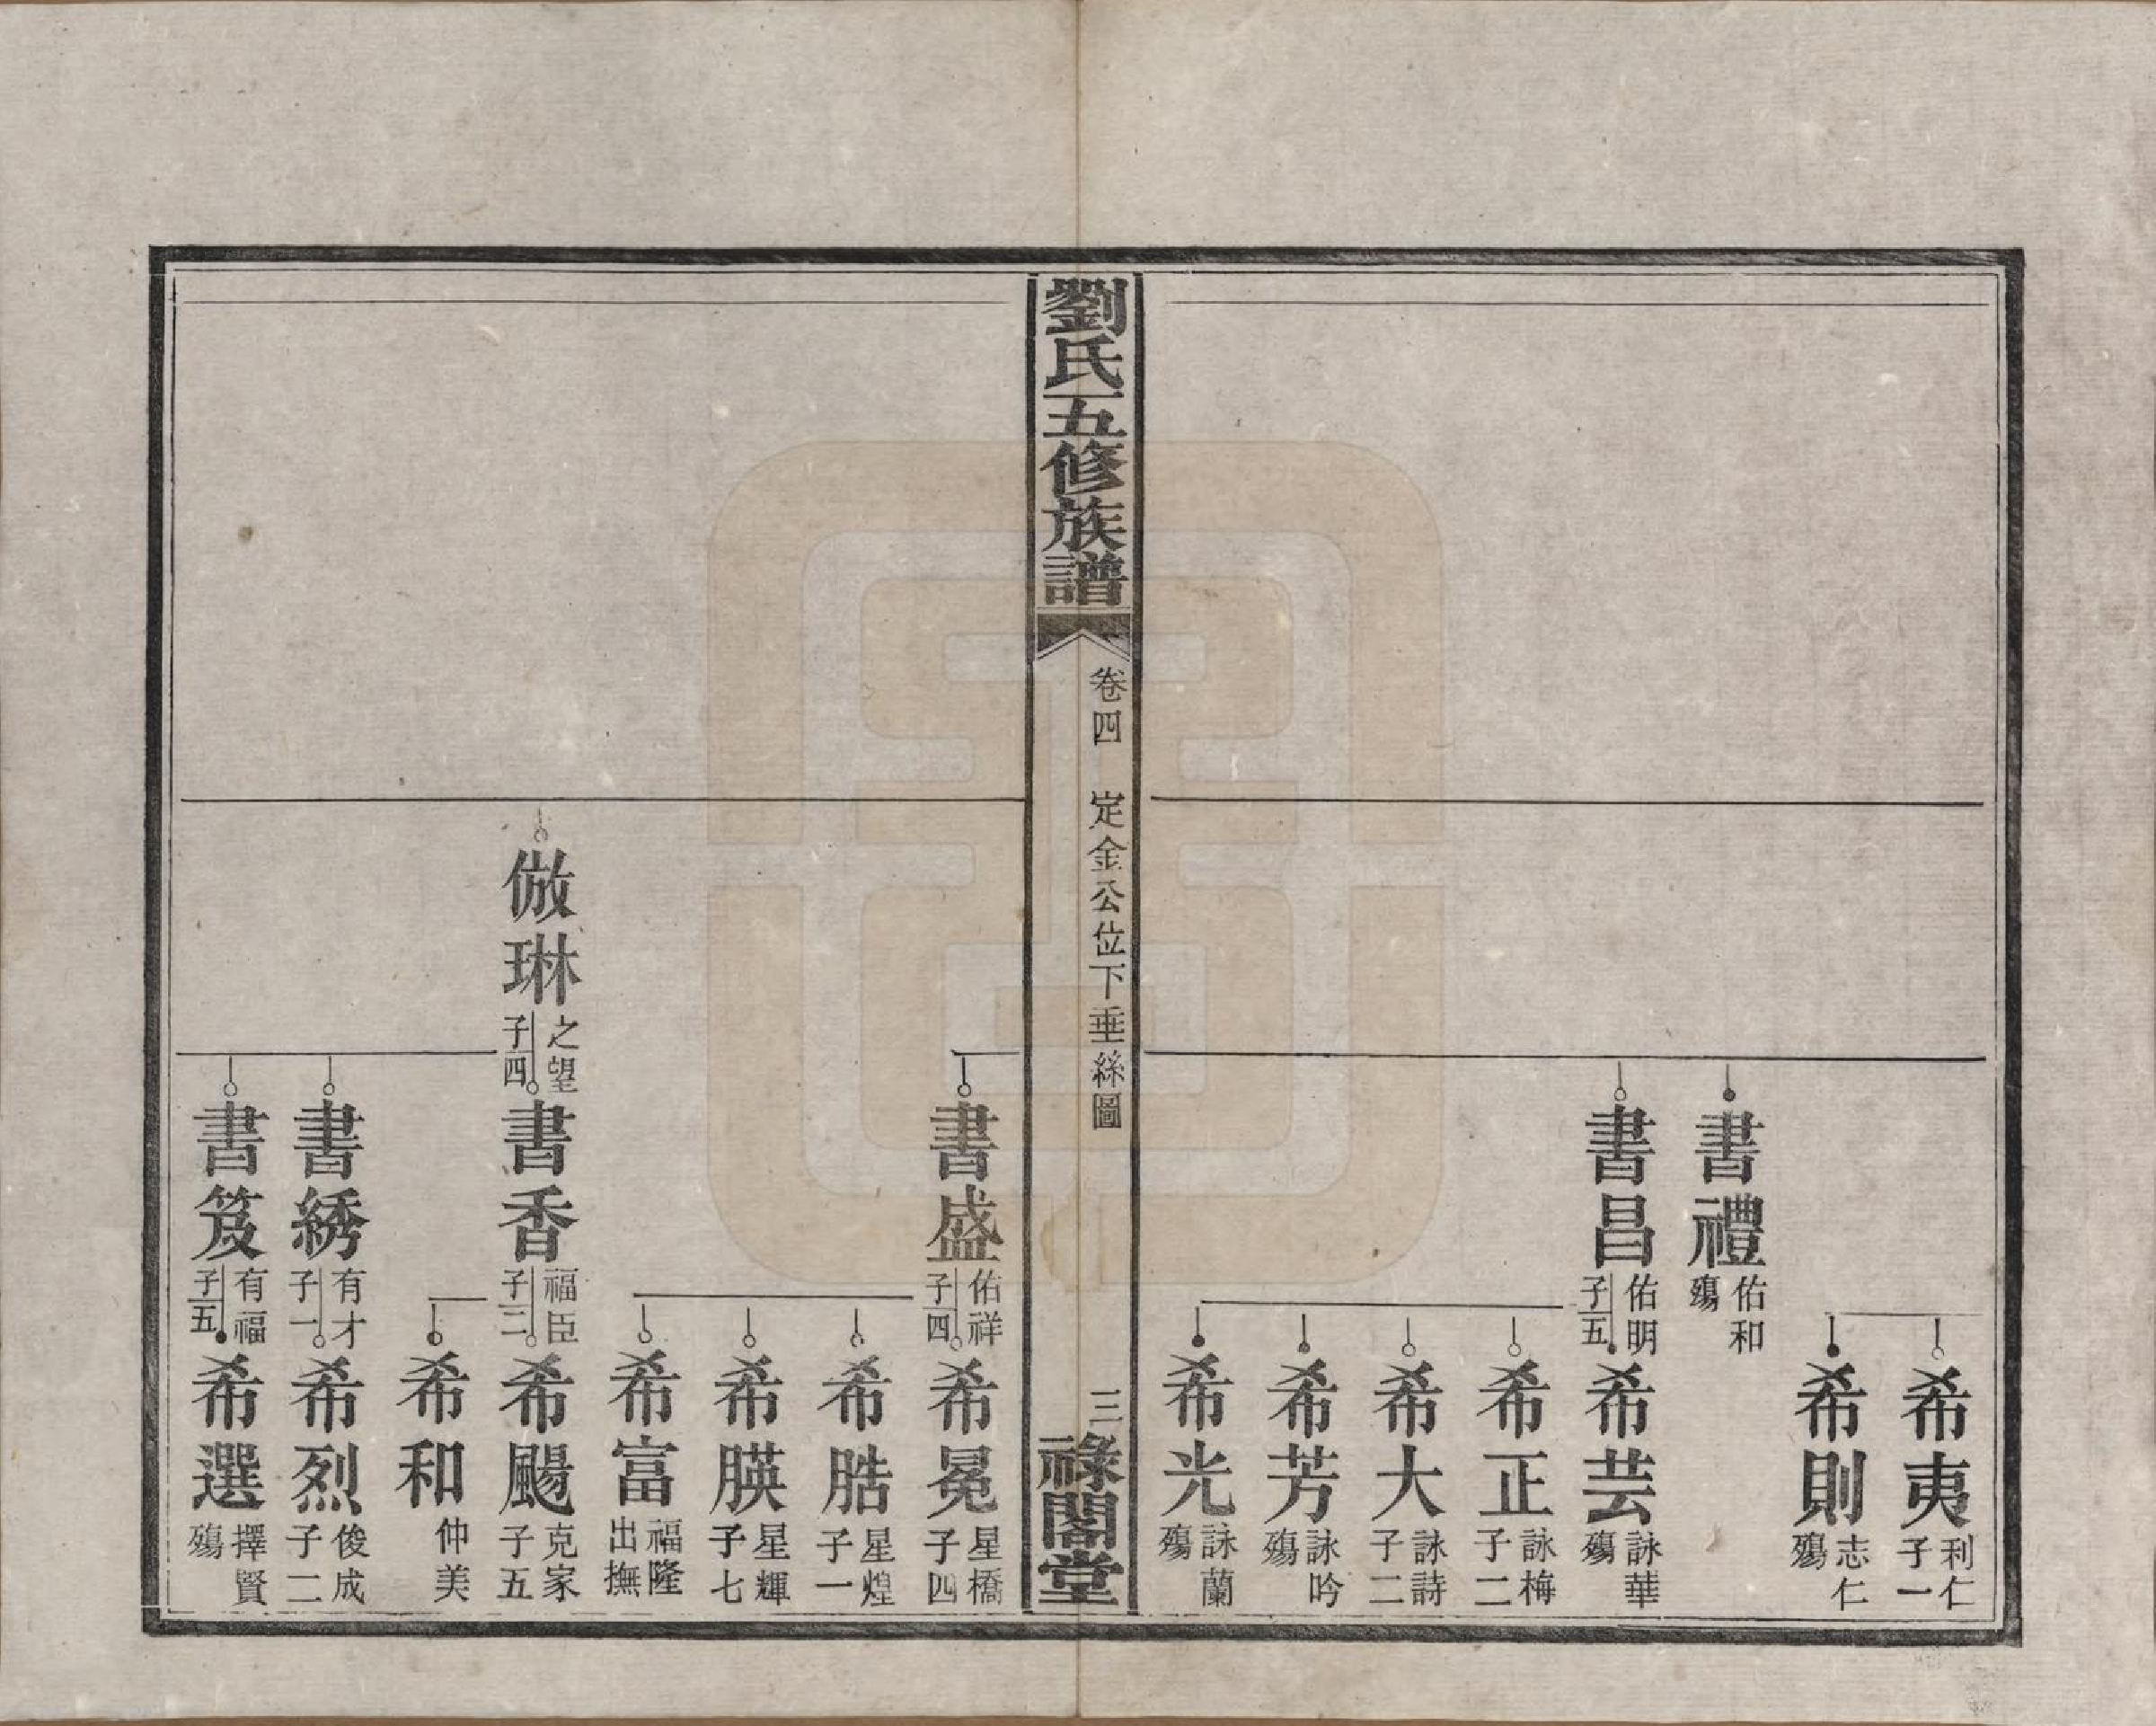 希夷 利仁 子一
希則 志仁 殤
書禮 佑和 殤
書昌 佑明 子五
希芸 詠華 殤
希正 詠梅 子二
希大 詠詩 子二
希芳 詠吟 殤
希光 詠蘭 殤
劉氏五修族譜 卷四 定金公位下垂絲圖 三 祿閣堂
書盛 佑祥 子四
希冕 星橋 子四
希 星煌 子一
希朠 星輝 子七
希富 福隆 出撫
倣琳 之望 子四
書香 福臣 子二
希颺 克家 子五
希和 仲美
書綉 有才 子一
希烈 俊成 子二
書笈 有福 子五
希選 擇賢 殤